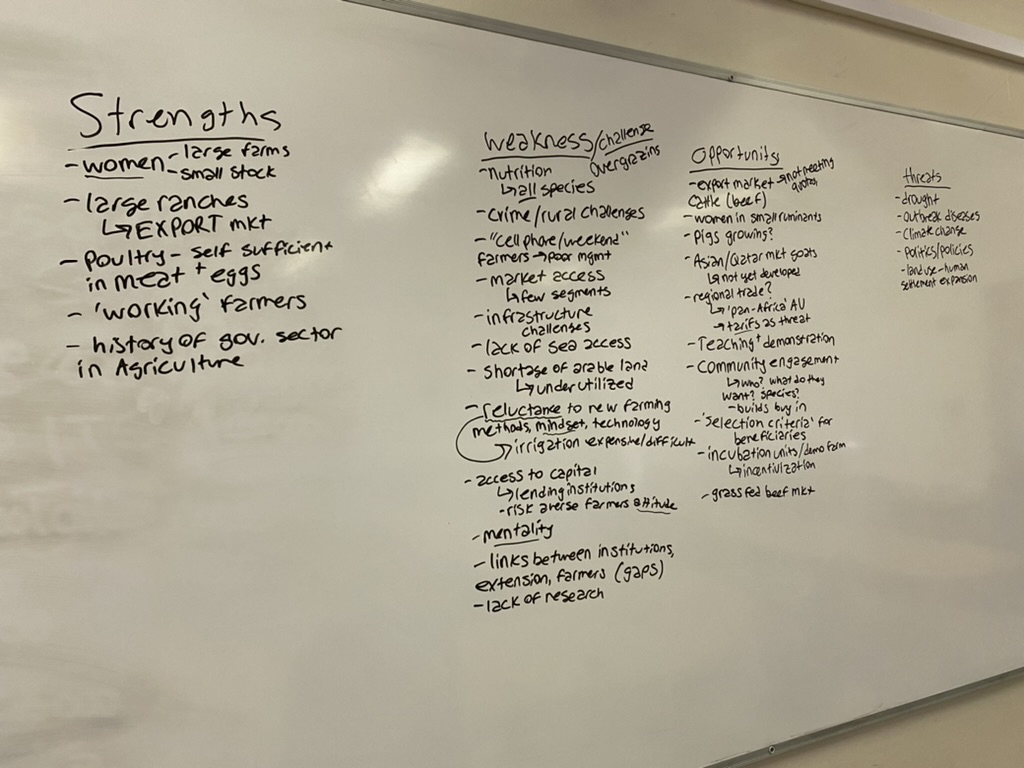 Strengths
- women - large farms
- small stock
- large ranches
↳ EXPORT mkt
- Poultry - self sufficient
in meat + eggs
- 'working' farmers
- history of gov. sector
in Agriculture
Weakness/challenge
overgrazing
- nutrition
↳ all species
- crime/rural challenges
- "cell phone/weekend"
farmers → poor mgmt
- market access
↳ few segments
- infrastructure
challenges
- lack of sea access
- shortage of arable land
↳ under utilized
- reluctance to new farming
methods, mindset, technology
→ irrigation expensive/difficult
- access to capital
↳ lending institutions
- risk averse farmers attitude
- mentality
- links between institutions,
extension, farmers (gaps)
- lack of research
Opportunity
- export market → not meeting
quotas
cattle (beef)
- women in small ruminants
- Pigs growing?
- Asian/Qatar mkt goats
↳ not yet developed
- regional trade?
↳ 'pan-Africa' AU
→ tarifs as threat
- Teaching + demonstration
- community engagement
↳ who? what do they
want? species?
- builds buy in
- 'selection criteria' for
beneficiaries
- incubation units/demo farm
↳ incentivization
- grass fed beef mkt
threats
- drought
- outbreak diseases
- Climate change
- politics/policies
- land use - human
settlement expansion